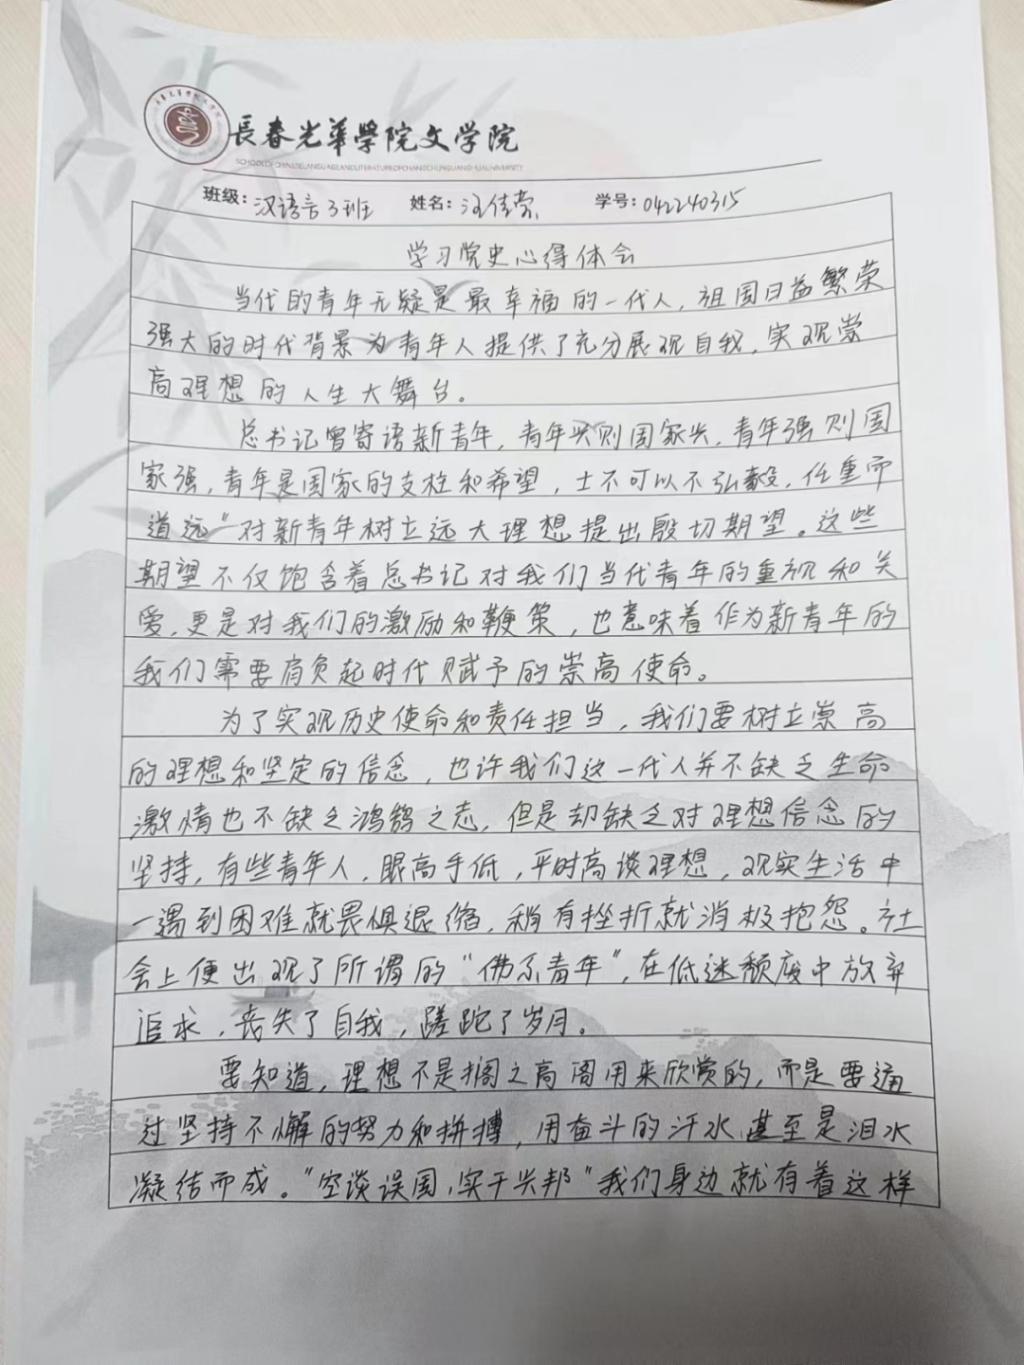 長春光華學院文学院
班级:汉语言3班 姓名:汪佳荣 学号:042240315
学习院史心得体会
当代的青年无疑是最幸福的一代人，祖国日益繁荣
强大的时代背景为青年人提供了充分展现自我，实现崇
高理想的人生大舞台。
总书记曾寄语新青年，青年兴则国家兴，青年强则国
家强，青年是国家的支柱和希望，士不可以不弘毅，任重而
道远"对新青年树立远大理想提出殷切期望。这些
期望不仅饱含着总书记对我们当代青年的重视和关
爱，更是对我们的激励和鞭策，也意味着作为新青年的
我们需要肩负起时代赋予的崇高使命。
为了实现历史使命和责任担当，我们要树立崇高
的理想和坚定的信念，也许我们这一代人并不缺乏生命
激情也不缺乏鸿鹄之志，但是却缺乏对理想信念的
坚持，有些青年人，眼高手低，平时高谈理想，现实生活中
一遇到困难就畏惧退缩，稍有挫折就消极抱怨。社
会上便出现了所谓的"佛系青年"，在低迷颓废中放弃
追求，丧失了自我，蹉跎了岁月。
要知道，理想不是搁之高阁用来欣赏的，而是要通
过坚持不懈的努力和拼搏，用奋斗的汗水，甚至是泪水
凝结而成。"空谈误国，实干兴邦"我们身边就有着这样